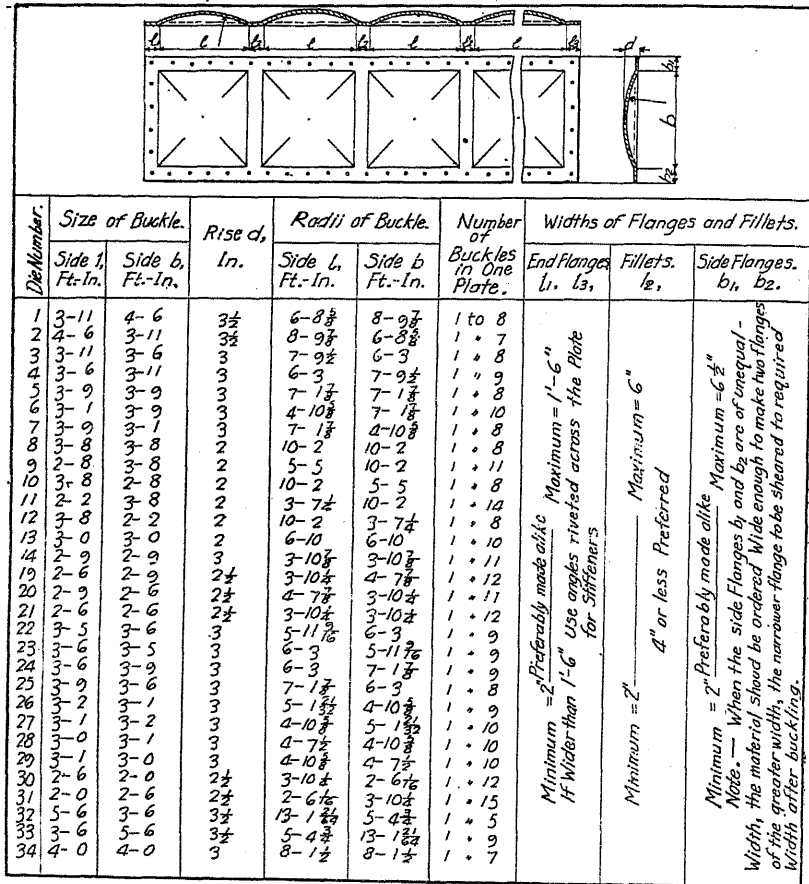 l₁ l l₂ l l₂ l l₂ l l₃
d
b₁
b
b₂
Die Number.
Size of Buckle.
Side l, Ft.-In.
Side b, Ft.-In.
Rise d, In.
Radii of Buckle.
Side l, Ft.-In.
Side b Ft.-In.
Number of Buckles in One Plate.
Widths of Flanges and Fillets.
End Flanges l₁, l₃,
Fillets. l₂,
Side Flanges. b₁, b₂.
1 3-11 4-6 3½ 6-8⅝ 8-9⅞ 1 to 8
2 4-6 3-11 3½ 8-9⅞ 6-8⅝ 1 " 7
3 3-11 3-6 3 7-9½ 6-3 1 " 8
4 3-6 3-11 3 6-3 7-9½ 1 " 9
5 3-9 3-9 3 7-1⅞ 7-1⅞ 1 " 8
6 3-1 3-9 3 4-10⅝ 7-1⅞ 1 " 10
7 3-9 3-1 3 7-1⅞ 4-10⅝ 1 " 8
8 3-8 3-8 2 10-2 10-2 1 " 8
9 2-8 3-8 2 5-5 10-2 1 " 11
10 3-8 2-8 2 10-2 5-5 1 " 8
11 2-2 3-8 2 3-7¼ 10-2 1 " 14
12 3-8 2-2 2 10-2 3-7¼ 1 " 8
13 3-0 3-0 2 6-10 6-10 1 " 10
14 2-9 2-9 3 3-10⅞ 3-10⅞ 1 " 11
19 2-6 2-9 2½ 3-10¼ 4-7⅞ 1 " 12
20 2-9 2-6 2½ 4-7⅞ 3-10¼ 1 " 11
21 2-6 2-6 2½ 3-10¼ 3-10¼ 1 " 12
22 3-5 3-6 3 5-11 9/16 6-3 1 " 9
23 3-6 3-5 3 6-3 5-11 9/16 1 " 9
24 3-6 3-9 3 6-3 7-1⅞ 1 " 9
25 3-9 3-6 3 7-1⅞ 6-3 1 " 8
26 3-2 3-1 3 5-1 21/32 4-10⅝ 1 " 9
27 3-1 3-2 3 4-10⅝ 5-1 21/32 1 " 10
28 3-0 3-1 3 4-7½ 4-10⅝ 1 " 10
29 3-1 3-0 3 4-10⅝ 4-7½ 1 " 10
30 2-6 2-0 2½ 3-10¼ 2-6 1/16 1 " 12
31 2-0 2-6 2½ 2-6 1/16 3-10¼ 1 " 15
32 5-6 3-6 3½ 13-1 21/64 5-4¾ 1 " 5
33 3-6 5-6 3½ 5-4¾ 13-1 21/64 1 " 9
34 4-0 4-0 3 8-1½ 8-1½ 1 " 7
Minimum = 2" Preferably made alike Maximum = 1'-6"
If Wider than 1'-6" Use angles riveted across the Plate
for Stiffeners
Minimum = 2" Maximum = 6"
4" or less Preferred
Minimum = 2" Preferably made alike Maximum = 6½"
Note. — When the side Flanges b₁ and b₂ are of unequal-
Width, the material shoud be ordered Wide enough to make two flanges
of the greater width, the narrower flange to be sheared to required
Width after buckling.